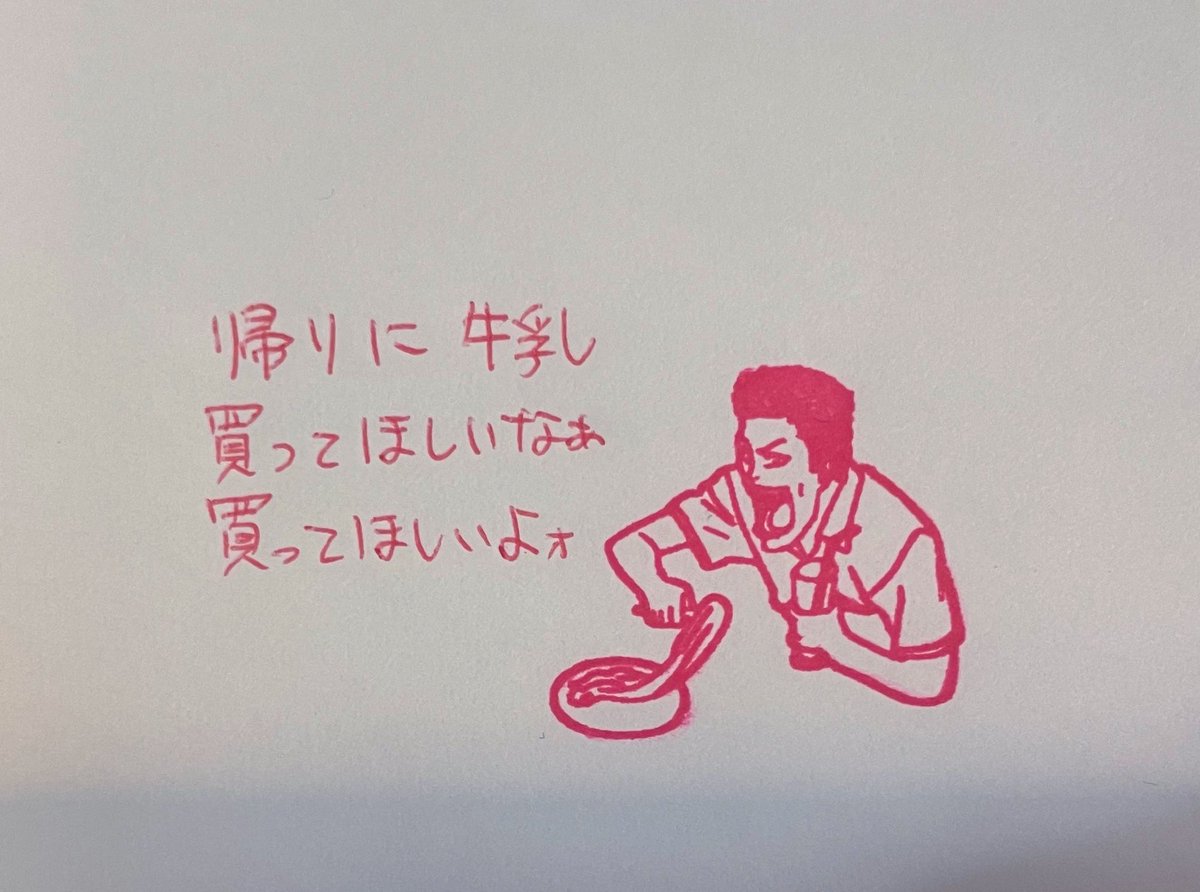 帰りに 牛乳
買ってほしいなぁ
買ってほしいよォ